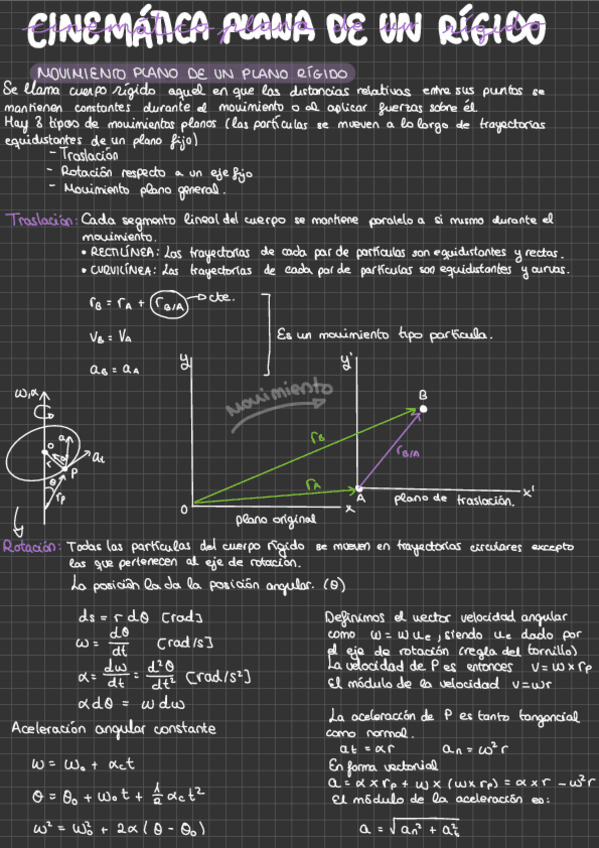 CINEMÁTICA PLANA DE UN RÍGIDO
MOVIMIENTO PLANO DE UN PLANO RÍGIDO
Se llama cuerpo rígido aquel en que las distancias relativas entre sus puntos se
mantienen constantes durante el movimiento o al aplicar fuerzas sobre él.
Hay 3 tipos de movimientos planos (las partículas se mueven a lo largo de trayectorias
equidistantes de un plano fijo)
- Traslación
- Rotación respecto a un eje fijo
- Movimiento plano general.
Traslación: Cada segmento lineal del cuerpo se mantiene paralelo a si mismo durante el
movimiento.
• RECTILÍNEA: Las trayectorias de cada par de partículas son equidistantes y rectas.
• CURVILÍNEA: Las trayectorias de cada par de partículas son equidistantes y curvas.
r_B = r_A + r_B/A → cte.
v_B = v_A
a_B = a_A
Es un movimiento tipo partícula.
y
y'
movimiento
B
r_B
r_B/A
r_A
A
O
x
x'
plano original
plano de traslación.
ω,α
O
a_n
a_t
r
θ
P
r_p
Rotación: Todas las partículas del cuerpo rígido se mueven en trayectorias circulares excepto
las que pertenecen al eje de rotación.
La posición la da la posición angular. (θ)
ds = r dθ [rad]
ω = dθ/dt [rad/s]
α = dω/dt = d²θ/dt² [rad/s²]
α dθ = ω dω
Aceleración angular constante
ω = ω₀ + α_c t
θ = θ₀ + ω₀ t + 1/2 α_c t²
ω² = ω₀² + 2α (θ - θ₀)
Definimos el vector velocidad angular
como ω = ω u_e, siendo u_e dado por
el eje de rotación (regla del tornillo)
La velocidad de P es entonces v = ω × r_p
El módulo de la velocidad v = ωr
La aceleración de P es tanto tangencial
como normal.
a_t = αr a_n = ω² r
En forma vectorial
a = α × r_p + ω × (ω × r_p) = α × r - ω² r
El módulo de la aceleración es:
a = √(a_n² + a_t²)